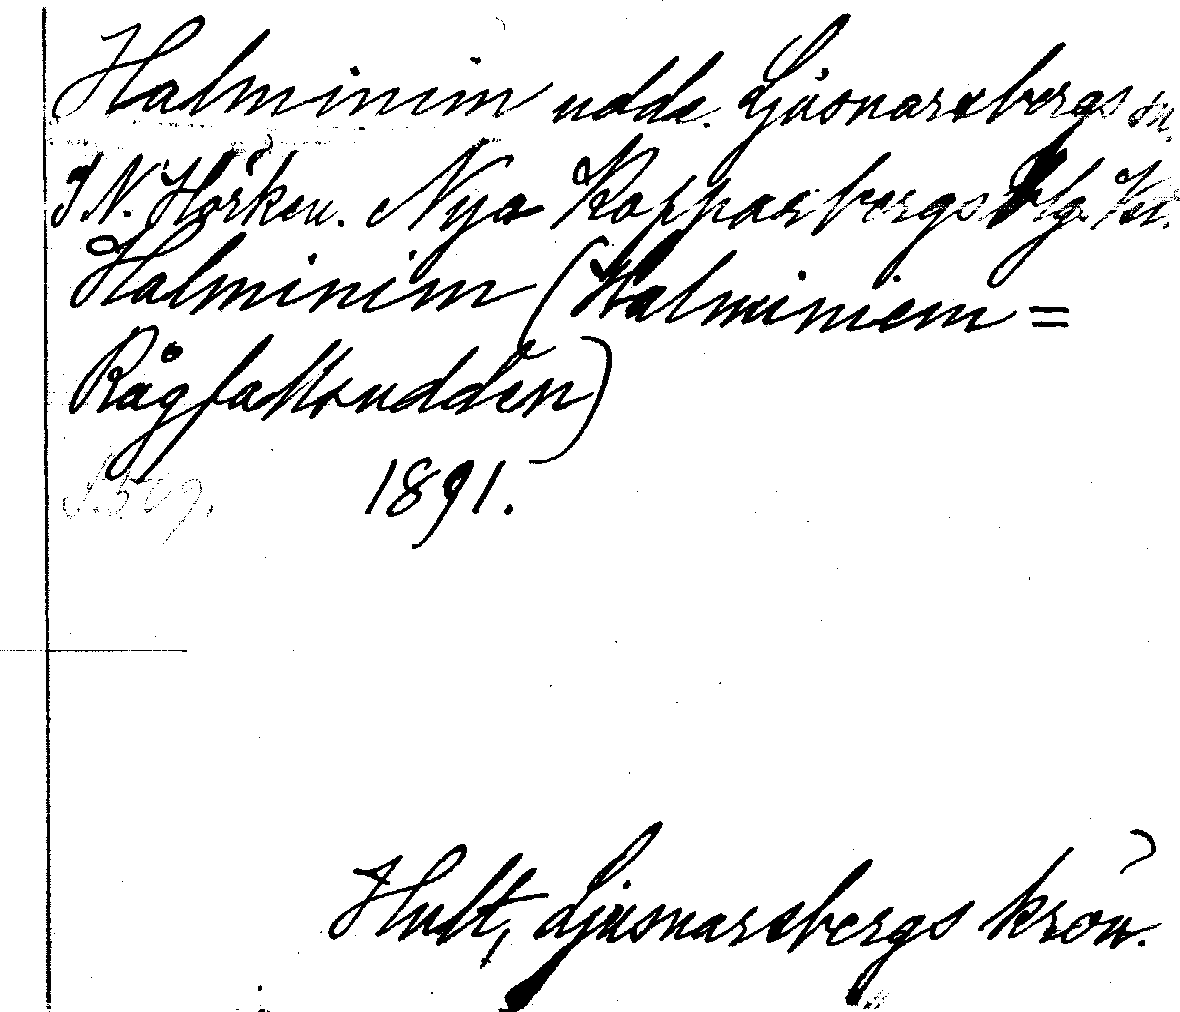 Halminim udde. Ljusnarsbergs sn.
I N. Hörken. Nya Kopparbergs blg. Vstl.
Halminim (Halminiem =
Rågfallsudden)
S. 509. 1891.
Hult, Ljusnarsbergs krön.